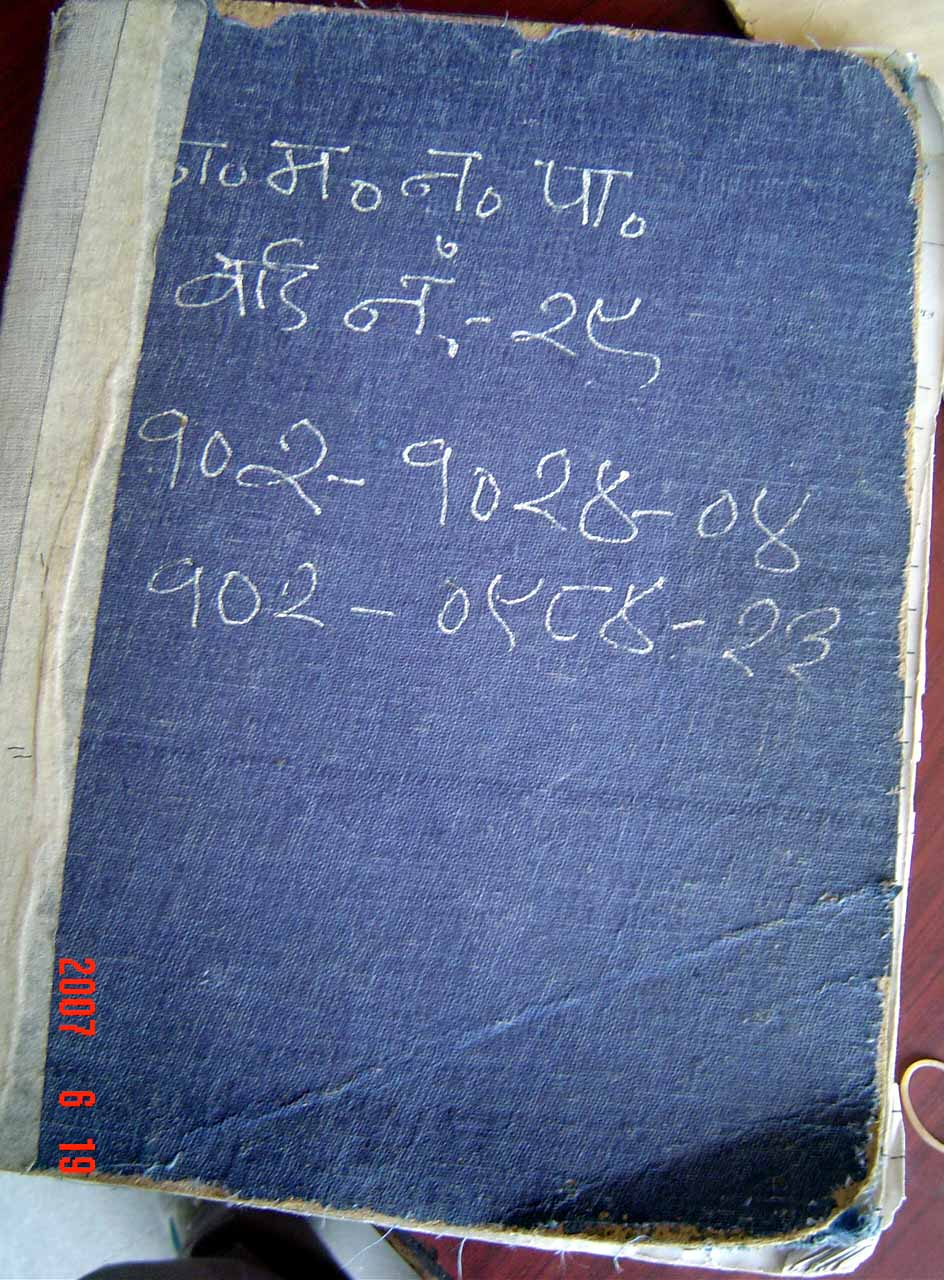 का०म०न०पा०
वार्ड नं.- २९
१०२- १०२४-०४
१०२ - ०९८४-२३
2007 6 19